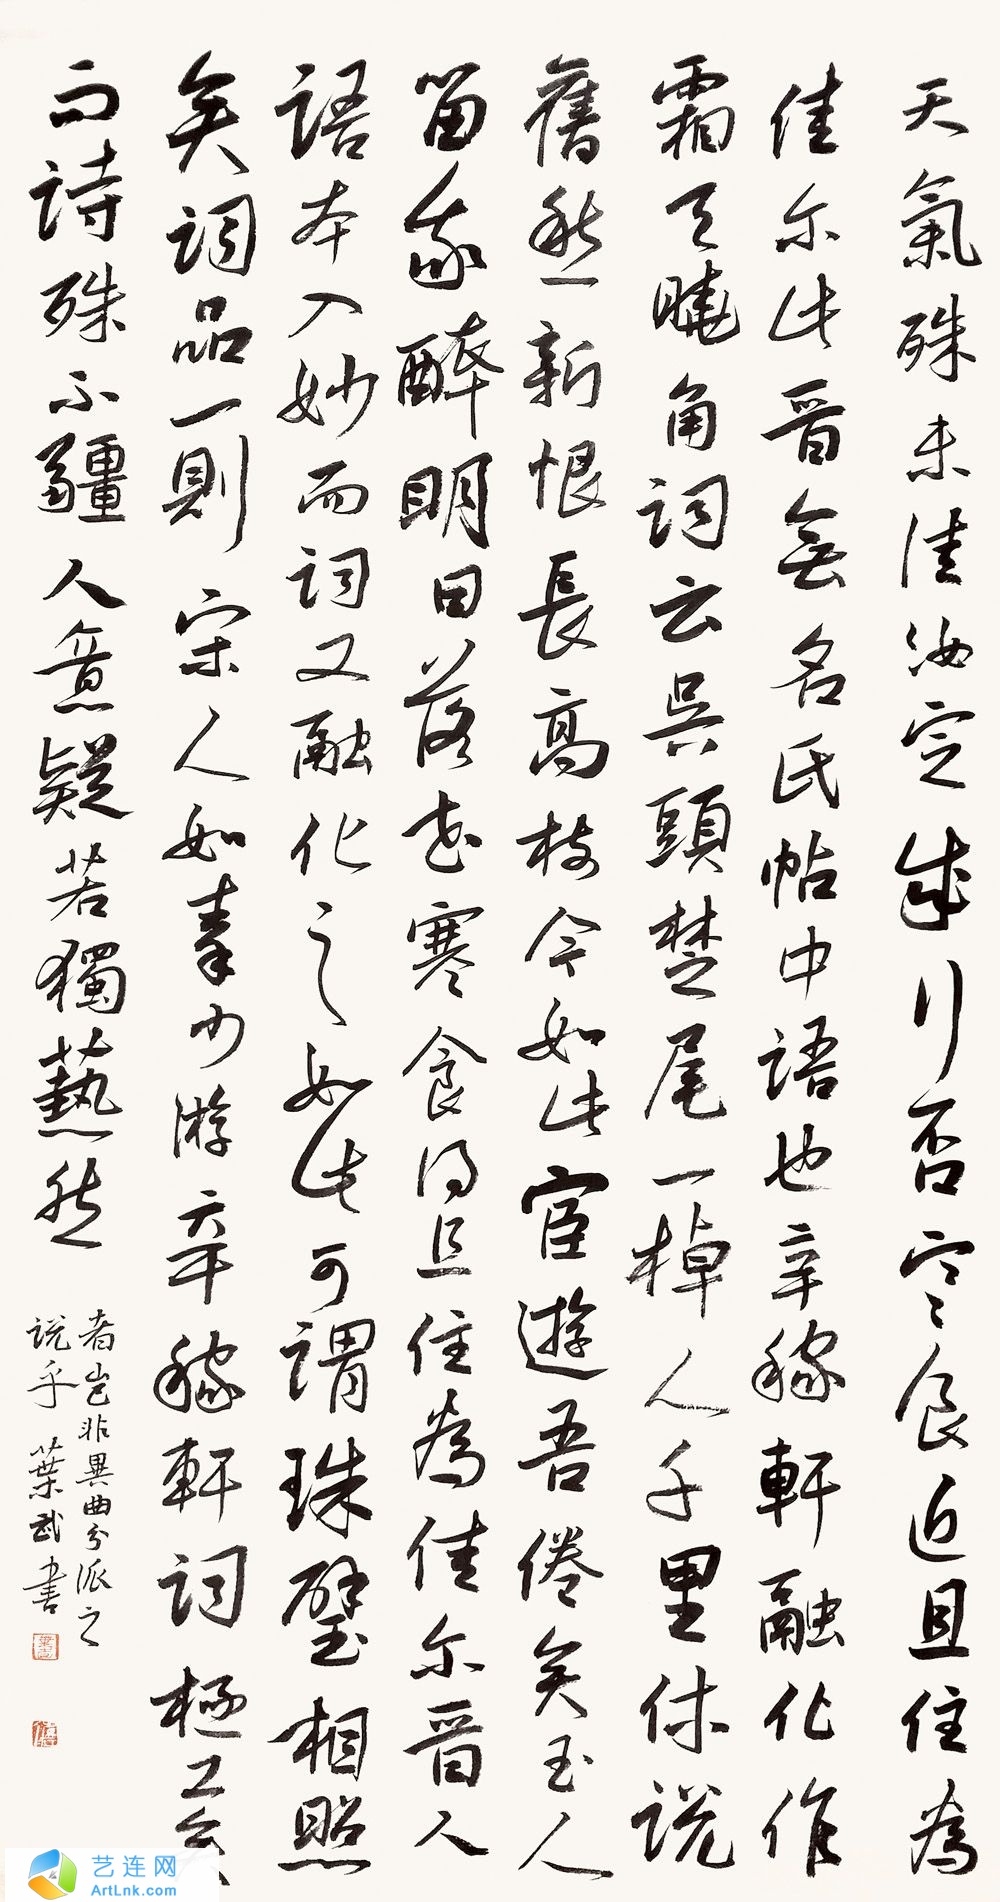 天氣殊未佳汝定成行否寒食近且住為
佳尔此晋無名氏帖中語也辛稼軒融化作
霜天曉角詞云吳頭楚尾一棹人千里休說
舊愁新恨長亭樹今如此宦遊吾倦矣玉人
留我醉明日落花寒食得且住為佳尔晋人
語本入妙而詞又融化之如此可謂珠璧相照
矣詞品一則 宋人如秦少游辛稼軒詞極工矣
而詩殊不彊人意疑若獨蓺然
者豈非異曲分派之
說乎 葉武書
艺连网
ArtLnk.com